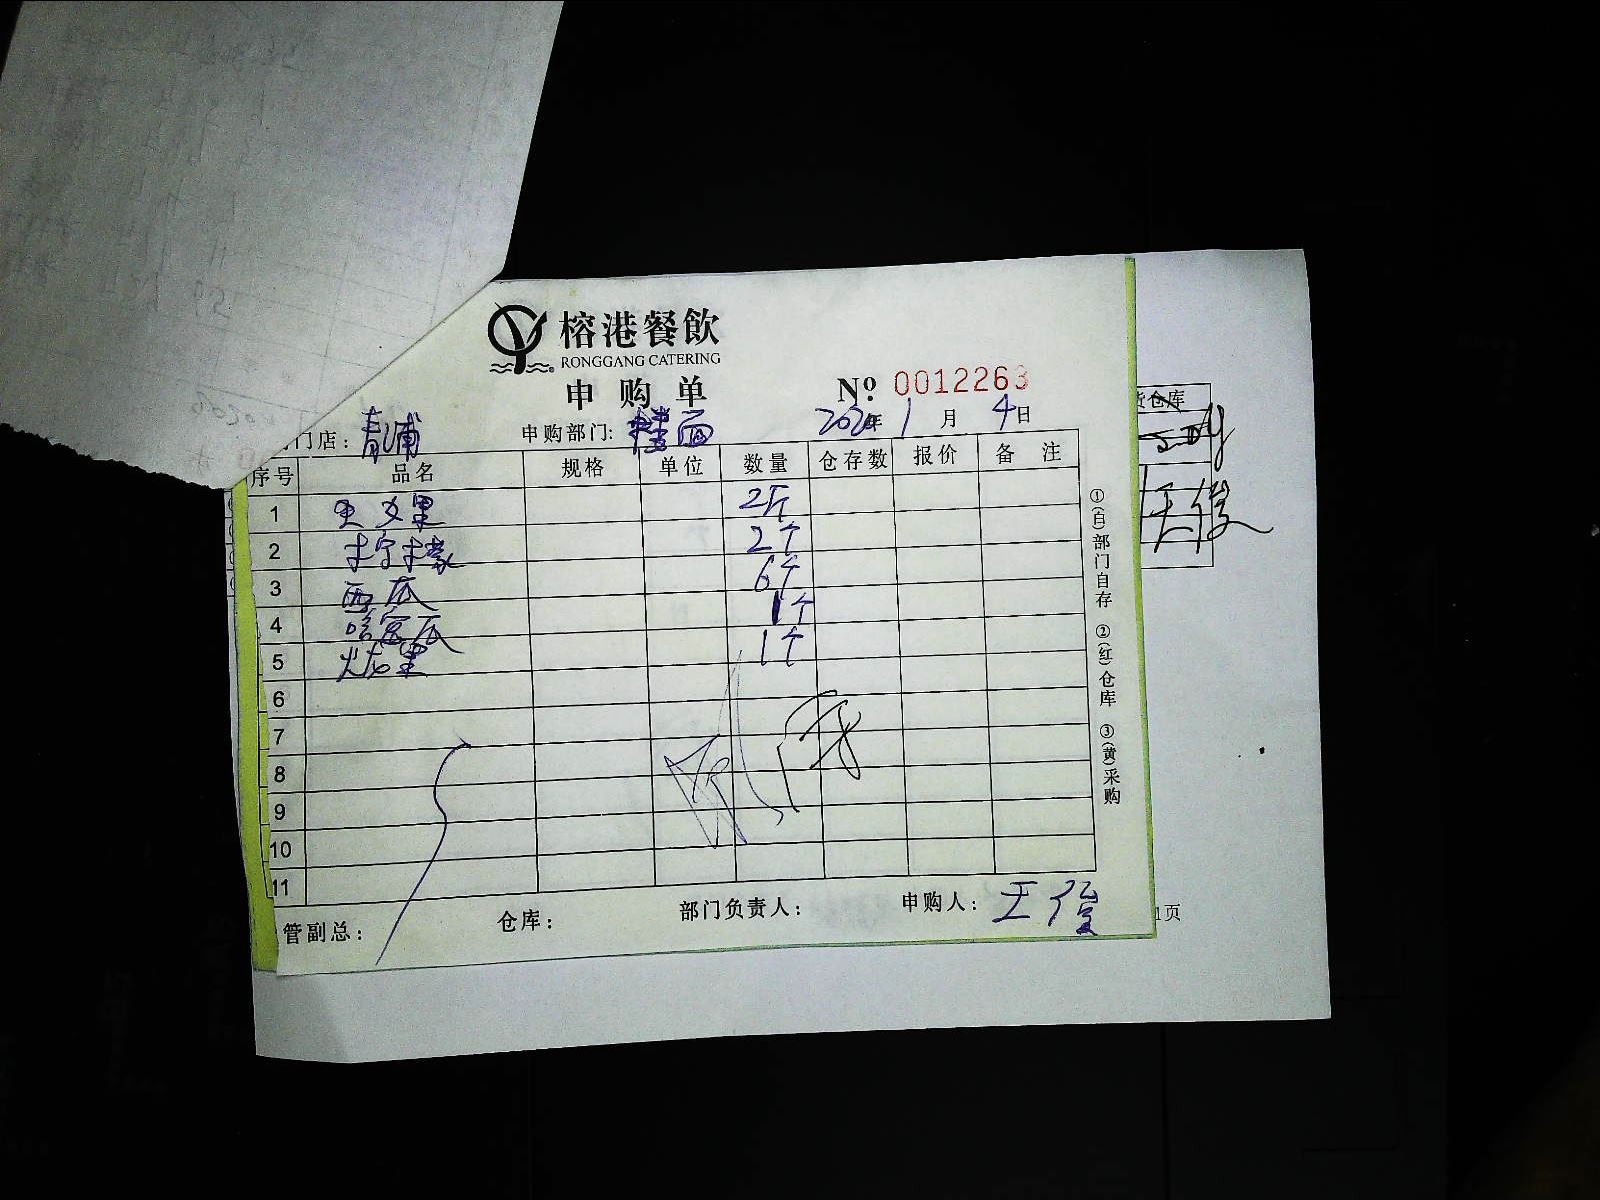 榕港餐飲
RONGGANG CATERING
申购单
№ 0012263
门店：青浦 申购部门：楼面 2020年1月4日
序号 品名 规格 单位 数量 仓存数 报价 备注
1 2斤
2 柠檬 2个
3 西瓜 6个
4 哈密瓜 1个
5 火龙果 1个
6
7
8
9
10
11
管副总： 仓库： 部门负责人： 申购人：王俊
①(白)部门自存 ②(红)仓库 ③(黄)采购
货仓库
王俊
1页